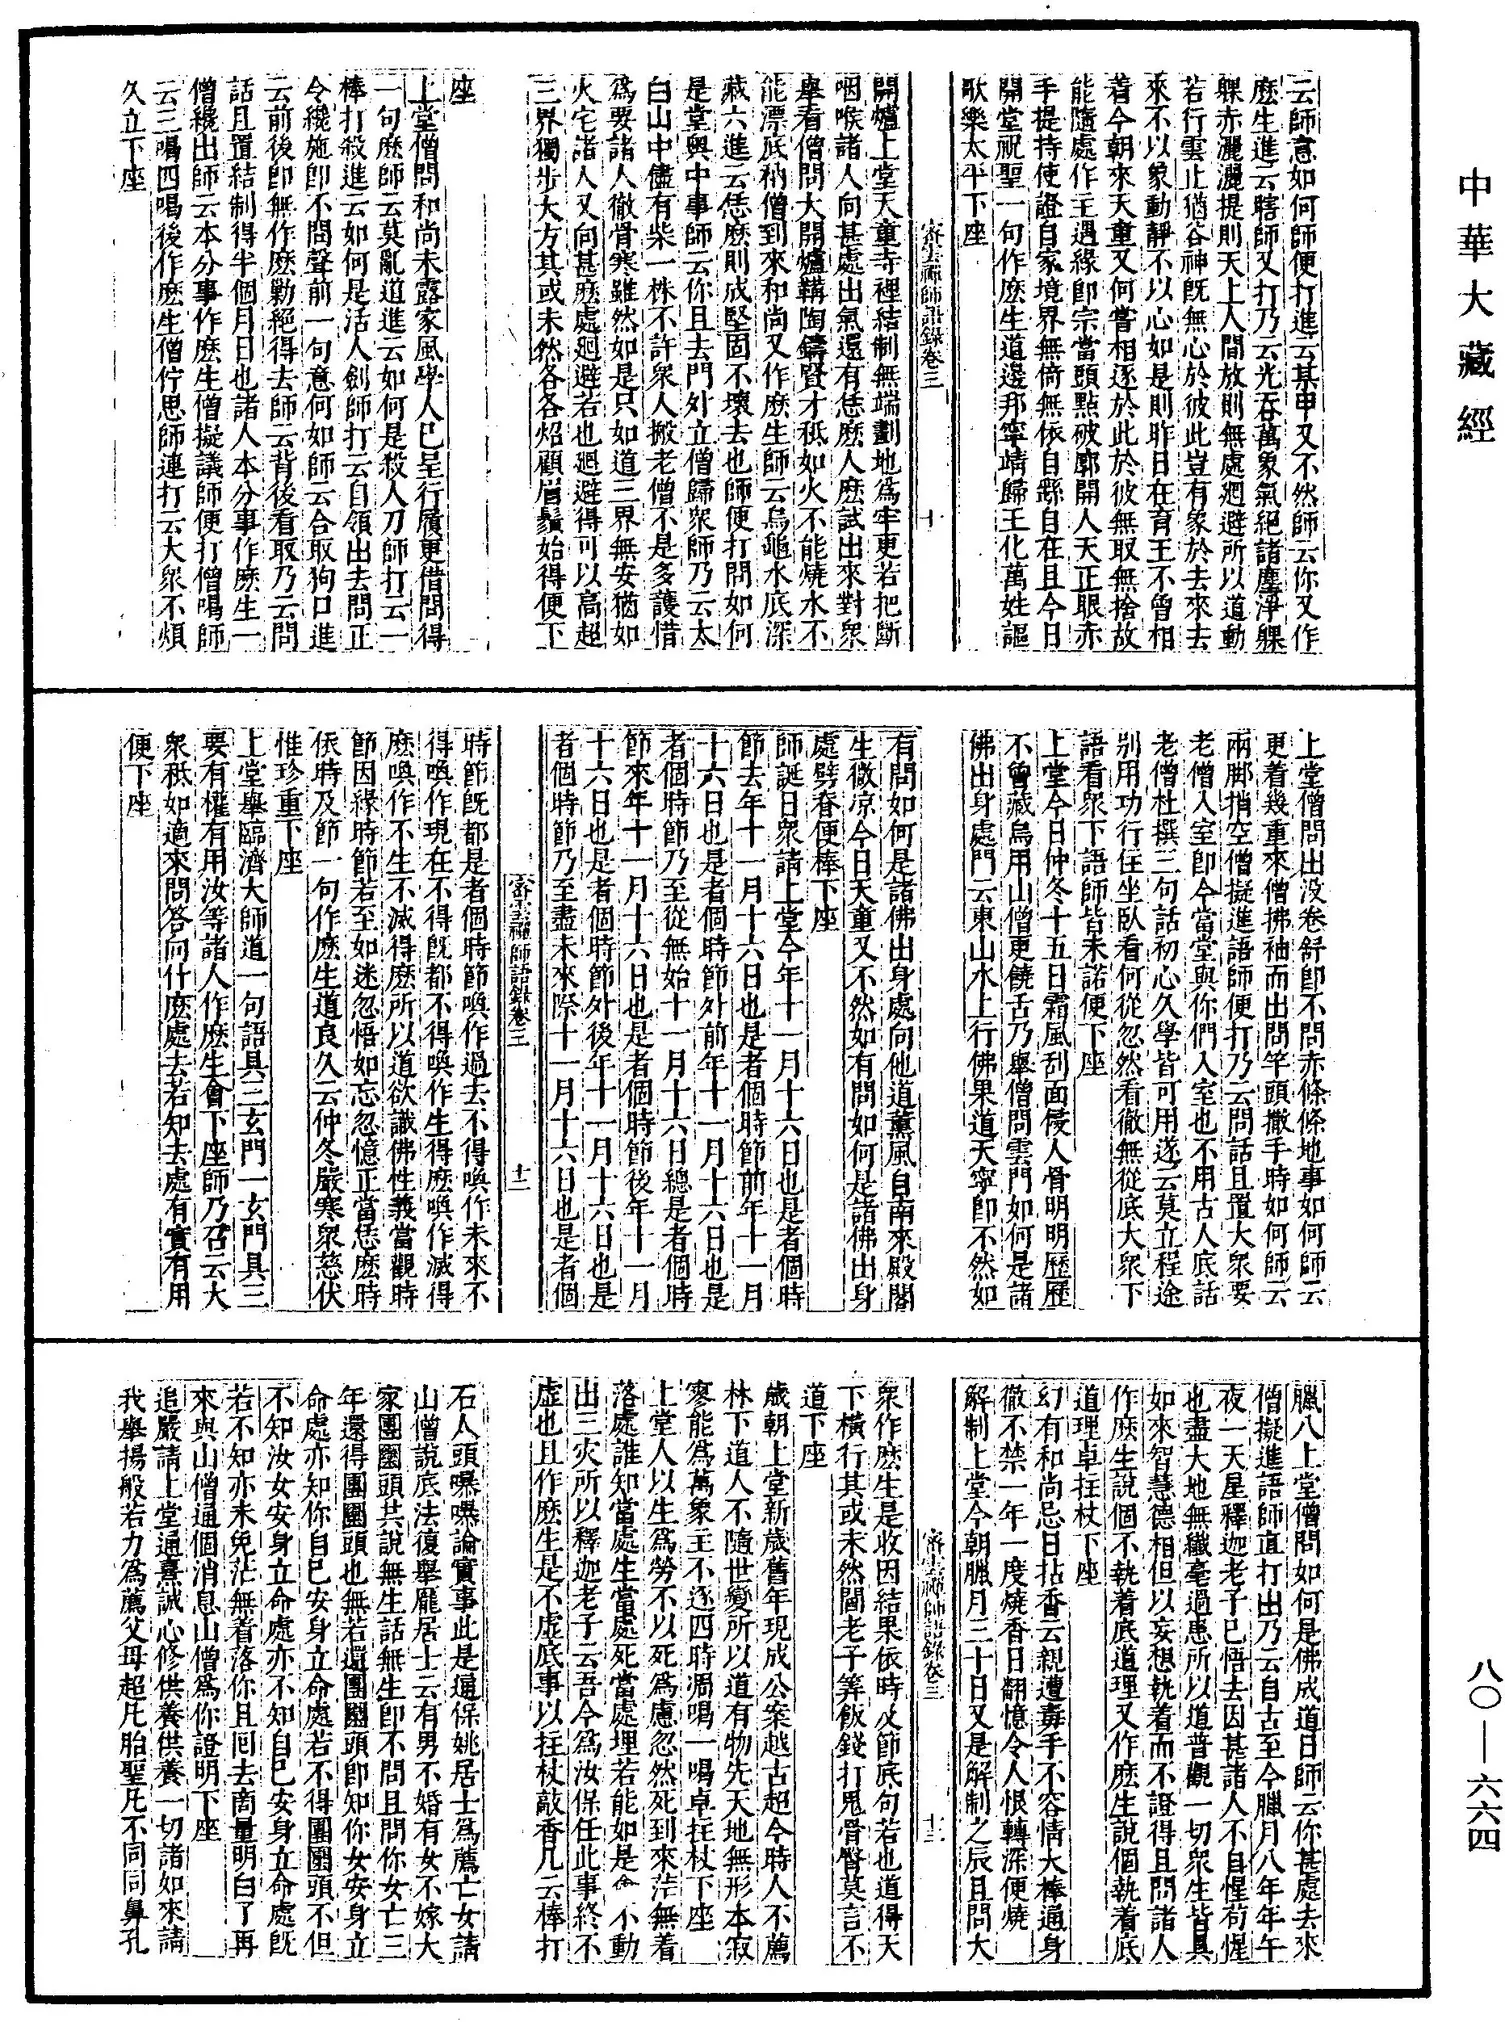 中華大藏經
云師意如何師便打進云某甲又不然師云你又作
麽生進云瞎師又打乃云光吞萬象氣絕諸塵淨躶
躶赤灑灑提則天上人間放則無處廻避所以道動
若行雲止猶谷神旣無心於彼此豈有象於去來去
來不以象動靜不以心如是則昨日在育王不曾相
着今朝來天童又何嘗相逐於此於彼無取無捨故
能隨處作主遇緣卽宗當頭點破廓開人天正眼赤
手提持使證自家境界無倚無依自繇自在且今日
開堂祝聖一句作麽生道邊邦寧靖歸王化萬姓謳
歌樂太平下座
密雲禪師語錄卷三 十
開爐上堂天童寺裡結制無端劃地爲牢更若把斷
咽喉諸人向甚處出氣還有恁麽人麽試出來對衆
舉看僧問大開爐鞲陶鑄賢才秖如火不能燒水不
能漂底衲僧到來和尚又作麽生師云烏龜水底深
藏六進云恁麽則成堅固不壞去也師便打問如何
是堂奧中事師云你且去門外立僧歸衆師乃云太
白山中儘有柴一株不許衆人搬老僧不是多護惜
爲要諸人徹骨寒雖然如是只如道三界無安猶如
火宅諸人又向甚麽處廻避若也廻避得可以高超
三界獨步大方其或未然各各炤顧眉鬚始得便下
座
上堂僧問和尚未露家風學人已呈行履更借問得
一句麽師云莫亂道進云如何是殺人刀師打云一
棒打殺進云如何是活人劍師打云自領出去問正
令纔施卽不問聲前一句意何如師云合取狗口進
云前後卽無作麽勦絕得去師云背後看取乃云問
話且置結制得半個月日也諸人本分事作麽生一
僧纔出師云本分事作麽生僧擬議師便打僧喝師
云三喝四喝後作麽生僧佇思師連打云大衆不煩
久立下座
上堂僧問出沒卷舒卽不問赤條條地事如何師云
更着幾重來僧拂袖而出問竿頭撒手時如何師云
兩脚捎空僧擬進語師便打乃云問話且置大衆要
老僧入室卽今當堂與你們入室也不用古人底話
老僧杜撰三句話初心久學皆可用遂云莫立程途
別用功行住坐臥看何從忽然看徹無從底大衆下
語看衆下語師皆未諾便下座
上堂今日仲冬十五日霜風刮面侵人骨明明歷歷
不曾藏烏用山僧更饒舌乃舉僧問雲門如何是諸
佛出身處門云東山水上行佛果道天寧卽不然如
有問如何是諸佛出身處向他道薰風自南來殿閣
生微凉今日天童又不然如有問如何是諸佛出身
處劈脊便棒下座
師誕日衆請上堂今年十一月十六日也是者個時
節去年十一月十六日也是者個時節前年十一月
十六日也是者個時節外前年十一月十六日也是
者個時節乃至從無始十一月十六日總是者個時
節來年十一月十六日也是者個時節後年十一月
十六日也是者個時節外後年十一月十六日也是
者個時節乃至盡未來際十一月十六日也是者個
密雲禪師語錄卷三 十二
時節旣都是者個時節喚作過去不得喚作未來不
得喚作現在不得旣都不得喚作生得麽喚作滅得
麽喚作不生不滅得麽所以道欲識佛性義當觀時
節因緣時節若至如迷忽悟如忘忽憶正當恁麽時
依時及節一句作麽生道良久云仲冬嚴寒衆慈伏
惟珍重下座
上堂舉臨濟大師道一句語具三玄門一玄門具三
要有權有用汝等諸人作麽生會下座師乃召云大
衆秖如適來問答向什麽處去若知去處有實有用
便下座
臘八上堂僧問如何是佛成道日師云你甚處去來
僧擬進語師直打出乃云自古至今臘月八年年午
夜一天星釋迦老子已悟去因甚諸人不自惺苟惺
也盡大地無纖毫過患所以道普觀一切衆生皆具
如來智慧德相但以妄想執着而不證得且問諸人
作麽生說個不執着底道理又作麽生說個執着底
道理卓拄杖下座
幻有和尚忌日拈香云親遭毒手不容情大棒通身
徹不禁一年一度燒香日翻憶令人恨轉深便燒
解制上堂今朝臘月三十日又是解制之辰且問大
密雲禪師語錄卷三 十三
衆作麽生是收因結果依時及節底句若也道得天
下橫行其或未然閻老子筭飯錢打鬼骨臀莫言不
道下座
歲朝上堂新歲舊年現成公案越古超今時人不薦
林下道人不隨世變所以道有物先天地無形本寂
寥能爲萬象主不逐四時凋喝一喝卓拄杖下座
上堂人以生爲勞不以死爲慮忽然死到來茫無着
落處誰知當處生當處死當處埋若能如是會不動
出三灾所以釋迦老子云吾今爲汝保任此事終不
虛也且作麽生是不虛底事以拄杖敲香几云棒打
石人頭曝曝論實事此是逼保姚居士爲薦亡女請
山僧說底法復舉龐居士云有男不婚有女不嫁大
家團圞頭共說無生話無生卽不問且問你女亡三
年還得團圞頭也無若還團圞頭卽知你女安身立
命處亦知你自已安身立命處若不得團圞頭不但
不知汝女安身立命處亦不知自已安身立命處旣
若不知亦未免茫無着落你且囘去商量明白了再
來與山僧通個消息山僧爲你證明下座
追嚴請上堂通熹誠心修供養供養一切諸如來請
我舉揚般若力爲薦父母超凡胎聖凡不同同鼻孔
八〇—六六四